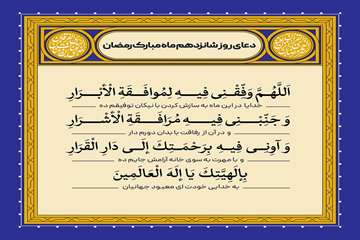 دعای روز شانزدهم ماه مبارک رمضان
اَللّٰهُمَّ وَفِّقْنی فیـهِ لِمُوافَـقَةِ الْأَبْـرَارِ
خدایا در این ماه به سازش کردن با نیکان توفیقم ده
وَ جَنِّبْنی فیـهِ مُرَافَـقَةَ الْأَشْـرَارِ
و در آن از رفاقت با بدان دورم دار
وَ آوِنـی فیـهِ بِرَحْمَتِـكَ إِلَى دَارِ الْقَرَارِ
و با مهرت به سوی خانه آرامش جایم ده
بِإِلَهِیَّتِكَ یَا إِلَهَ الْعَالَمِینَ
به خدایی خودت ای معبود جهانیان